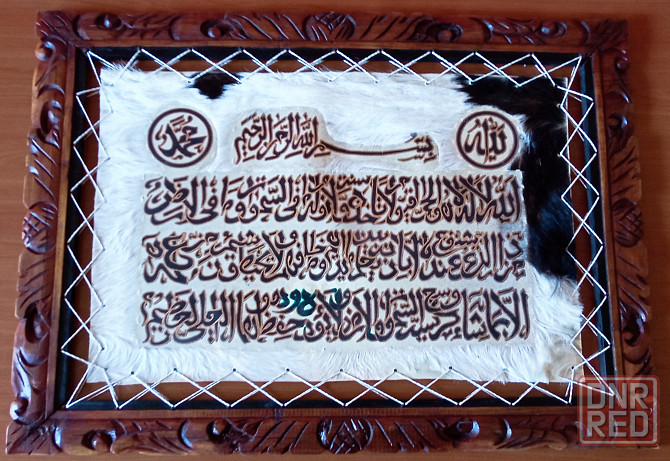 الله
بسم الله الرحمن الرحيم
محمد
الله لا اله الا هو الحي القيوم لا تاخذه سنة ولا نوم له ما في السموات وما في الارض
من ذا الذي يشفع عنده الا باذنه يعلم ما بين ايديهم وما خلفهم ولا يحيطون بشيء من علمه
الا بما شاء وسع كرسيه السموات والارض ولا يؤده حفظهما وهو العلي العظيم
DNR
RED